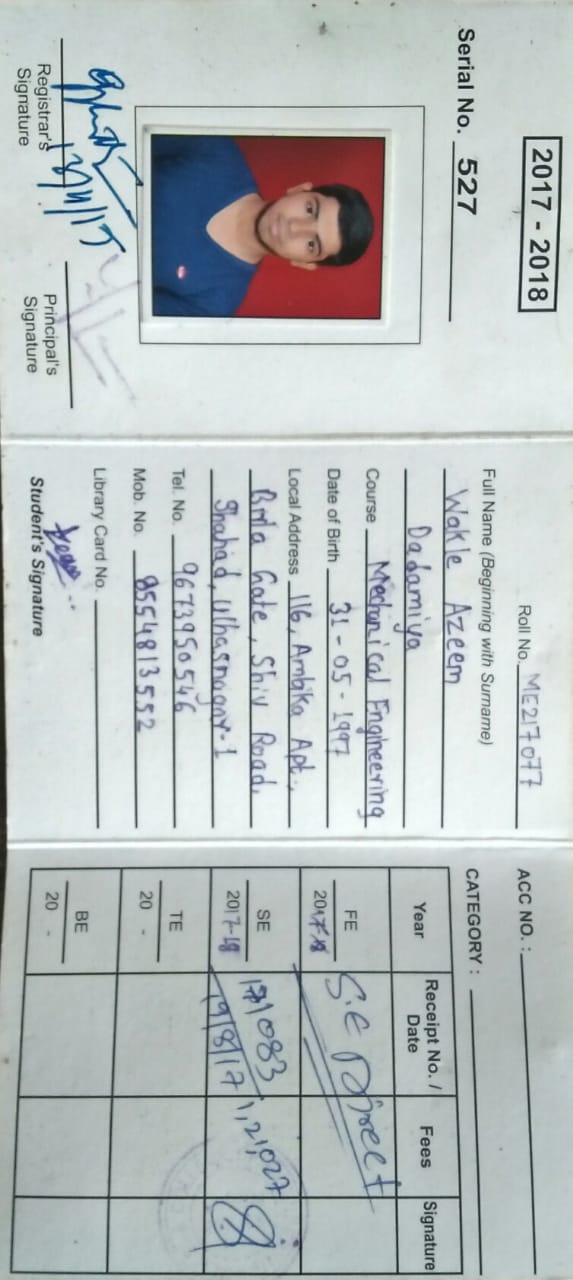 2017 - 2018
Serial No. 527
Registrar's
Signature
13/11/17
Principal's
Signature
Roll No. ME217077
Full Name (Beginning with Surname)
Wakle Azeem
Dadamiya
Course Mechanical Engineering
Date of Birth 31-05-1997
Local Address 116, Ambika Apt.,
Birla Gate, Shiv Road,
Shahad, Ulhasnagar-1
Tel. No. 9673950546
Mob. No. 8554813552
Library Card No.
Student's Signature
ACC NO. :
CATEGORY :
Year Receipt No. / Date Fees Signature
FE 2017-18 S.E Direct
SE 2017-18 171083 19/8/17 1,21,027
TE 20 -
BE 20 -